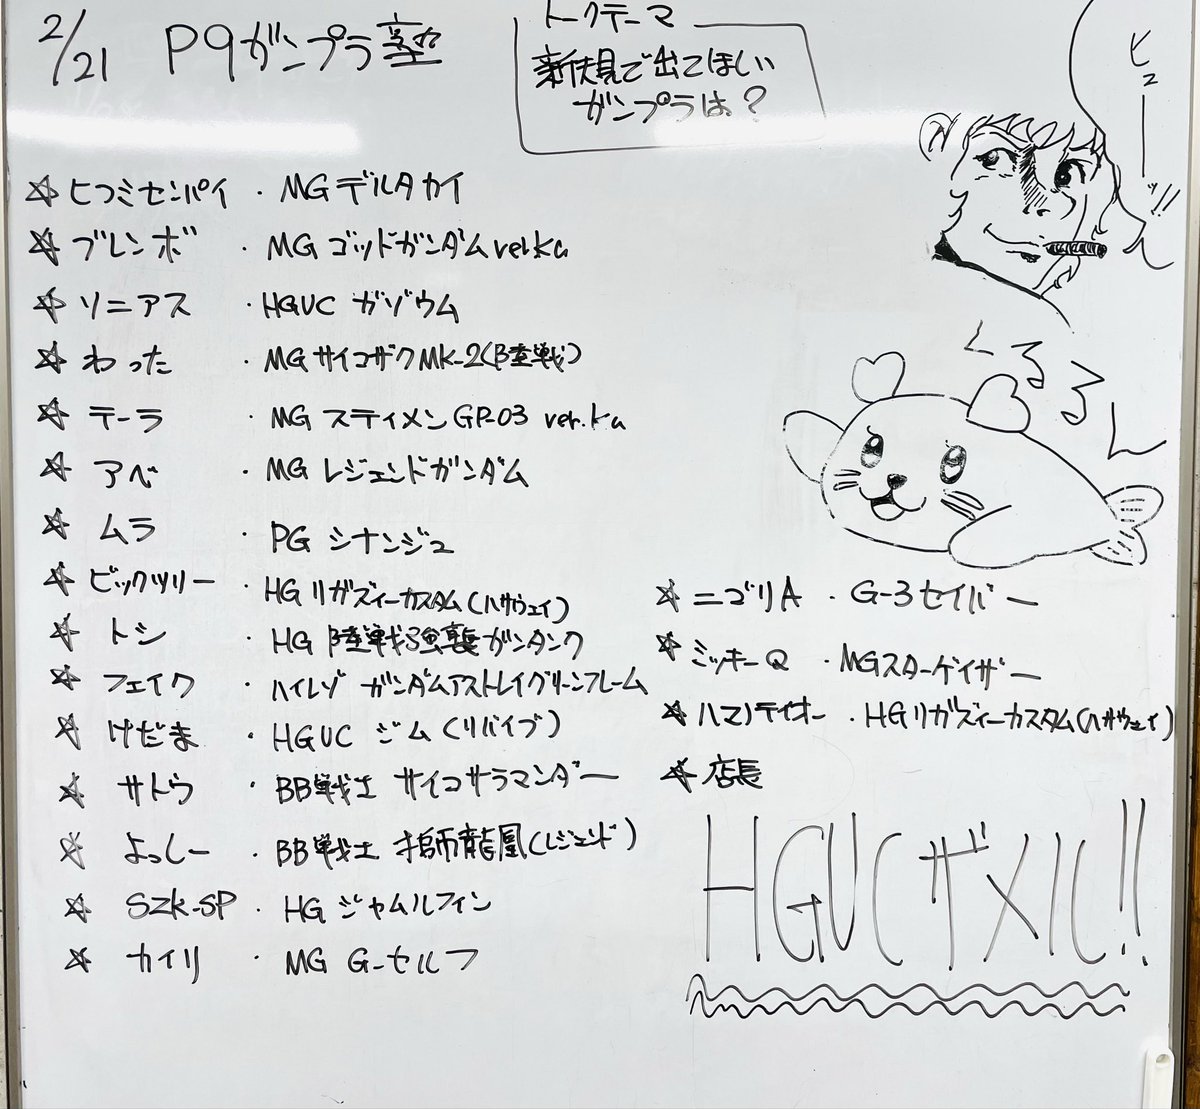 2/21 P9ガンプラ塾
トークテーマ
新規で出てほしい
ガンプラは?
ヒューーッ!!
☆ヒフミセンパイ ・ MGデルタカイ
☆ブレンボ ・MG ゴッドガンダムver.ka
☆ソニアス ・HGUC ガゾウム
☆わった ・MG サイコザクMK-2(陸戦)
☆テーラ ・MG スティメンGP-03 ver.ka
☆アベ ・MG レジェンドガンダム
☆ムラ ・PG シナンジュ
☆ビックツリー ・HG リガズィーカスタム(ハサウェイ)
☆トシ ・HG 陸戦強襲ガンタンク
☆フェイク ・ハイレゾ ガンダムアストレイグリーンフレーム
☆けだま ・HGUC ジム(リバイブ)
☆サトウ ・BB戦士 サイコサラマンダー
☆よっしー ・BB戦士 龍凰(レジェンド)
☆SZK-SP ・HG ジャムルフィン
☆カイリ ・MG G-セルフ
くるるん
☆ニゴリA ・G-3セイバー
☆ミッキーQ ・MGスターゲイザー
☆ハマノテイオー ・HGリガズィーカスタム(ハサウェイ)
☆店長
HGUCザメル!!